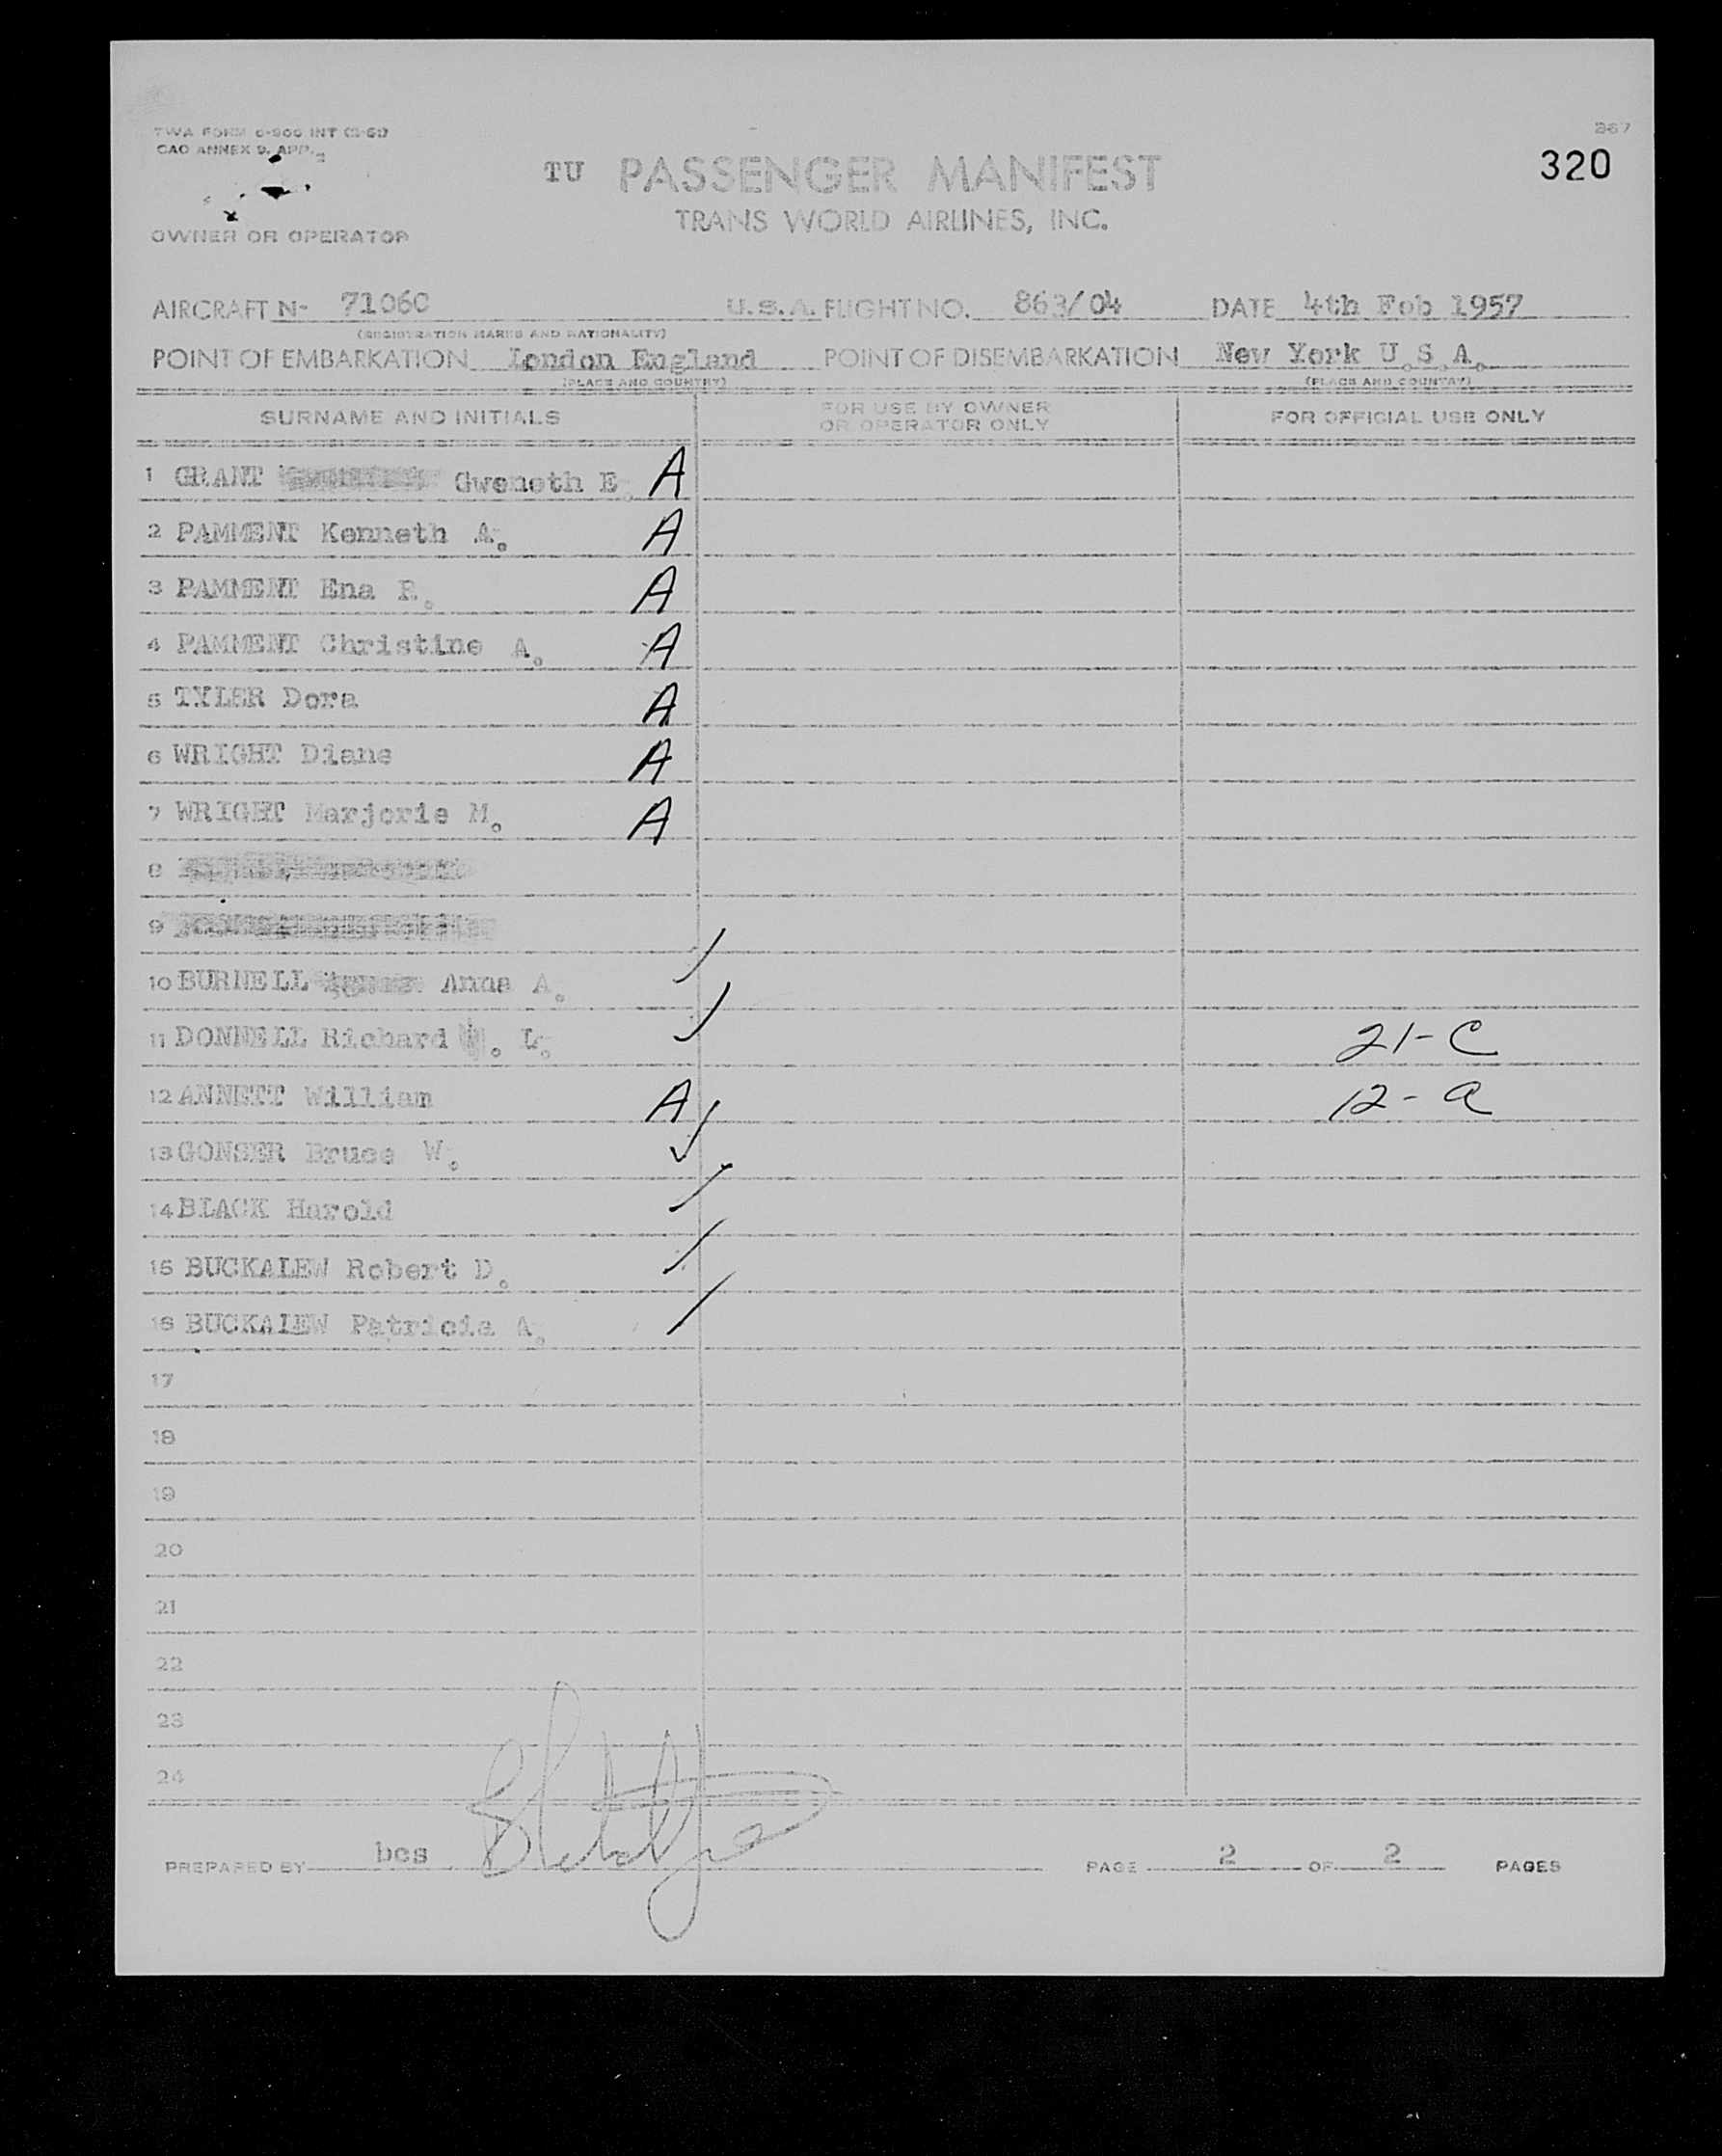 TWA FORM 0-900 INT (2-51)
CAO ANNEX 9, APP.
267
320
TU PASSENGER MANIFEST
TRANS WORLD AIRLINES, INC.
OWNER OR OPERATOR
AIRCRAFT N- 7106C U.S.A. FLIGHT NO. 863/04 DATE 4th Feb 1957
(REGISTRATION MARKS AND NATIONALITY)
POINT OF EMBARKATION London England POINT OF DISEMBARKATION New York U.S.A.
(PLACE AND COUNTRY) (PLACE AND COUNTRY)
SURNAME AND INITIALS FOR USE BY OWNER OR OPERATOR ONLY FOR OFFICIAL USE ONLY
1 GRANT Gweneth E. A
2 PAMMENT Kenneth A. A
3 PAMMENT Ena R. A
4 PAMMENT Christine A. A
5 TYLER Dora A
6 WRIGHT Diane A
7 WRIGHT Marjorie M. A
8
9
10 BURNELL Anna A.
11 DONNELL Richard L. 21-C
12 ANNETT William A 12-a
13 GONSER Bruce W.
14 BLACK Harold
15 BUCKALEW Robert D.
16 BUCKALEW Patricia A.
17
18
19
20
21
22
23
24
PREPARED BY bcs PAGE 2 OF 2 PAGES